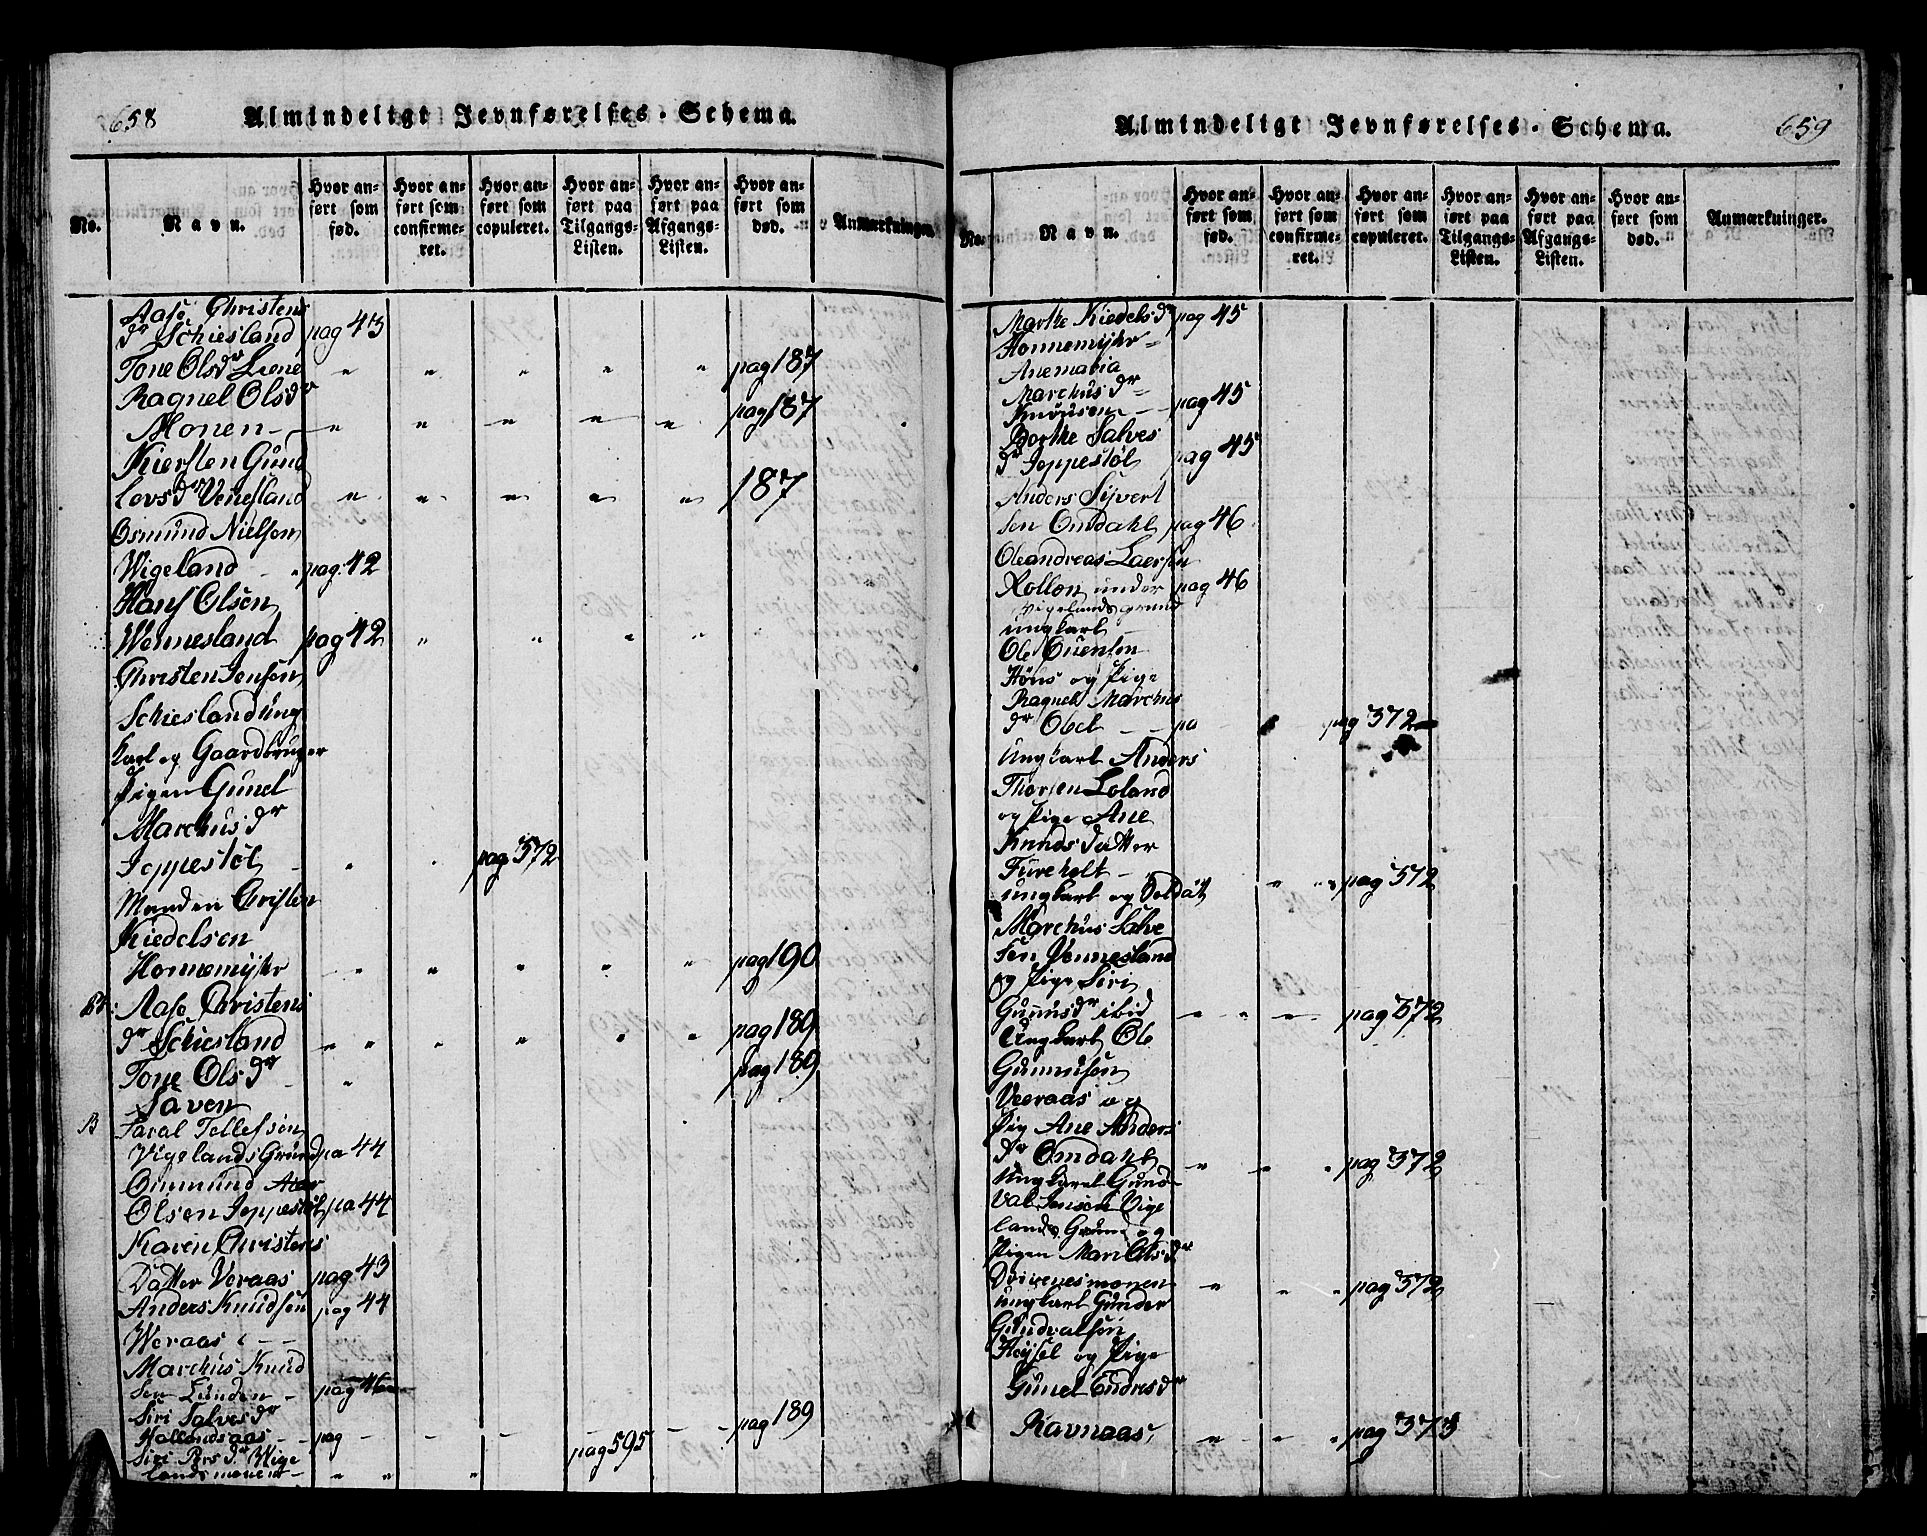 658
Almindeligt Jevnførelses-Schema.
No.
Navn.
Hvor anført som fød.
Hvor anført som confirmeret.
Hvor anført som copuleret.
Hvor anført paa Tilgangs-Listen.
Hvor anført paa Afgangs-Listen.
Hvor anført som død.
Anmærkninger.
Aase Christens
dr Schiesland pag 43
Tone Olsdr Liene " " " " " pag 187
Ragnel Olsdr
Monen " " " " " pag 187
Kiersten Gund
levsdr Venesland " " " " " 187
Osmund Nielsen
Wigeland pag 42
Hans Olsen
Wennesland pag 42 " " " "
Christen Jensen
Schiesland ung
Karl og Gaardbruger
Pigen Gunel
Marchusdr
Jeppestøl " " pag 372
Manden Christen
Kiedelsen
Honnemyhr " " " " " pag 190
Aase Christens
dr Schiesland " " " " " " pag 189
Tone Olsdr " pag 189
Saven
B Taral Tellefsen
Vigelands Grund pa 44
Ommund
Olsen Jeppestøl pa 44
Karen Christens
Datter Veraas pag 43
Anders Knudsen pag 44
Weraas
Marchus Knud
sen Lunden pag 46
Siri Salvesdr
Hallandsaas pag - - - - - pag 189
Siri Persdr Wige
landsmonen " " " pag 595
Almindeligt Jevnførelses-Schema.
659
No.
Navn.
Hvor anført som fød.
Hvor anført som confirmeret.
Hvor anført som copuleret.
Hvor anført paa Tilgangs-Listen.
Hvor anført paa Afgangs-Listen.
Hvor anført som død.
Anmærkninger.
Marthe Kiedelsdr pag 45
Honnemyhr
Anemaria
Marchusdr
Knudsen pag 45
Berthe Salves
dr Jeppestøl pag 45
Anders Sijvert
sen Omdahl pag 46
Oleandreas Laersen
Kollen under pag 46
Vigelands grund
ungkarl
Ole Evensen
Høus og Pige
Ragnel Marchus
dr Obel pa pag 372
Ungkarl Anders
Thorsen Loland
og Pige Ane
Knuds datter
Fureholt " " pag 372
ungkarl og Soldat
Marchus Salve
sen Vennesland
og Pige Siri
Gunnusdr ibid " " " pag 372
Ungkarl Ole
Gunnusen
Veeraas og
Pig Ane Anders
dr Omdahl " " " pag 372
Ungkarel Gund
val Jensen Vige
lands Grund og
Pigen Mari Olsdr
Drivenesmonen " " " pag 372
ungkarl Gunder
Gundvalsen
Heysel og Pige
Gunel Endresdr
Ravnaas " " " pag 373